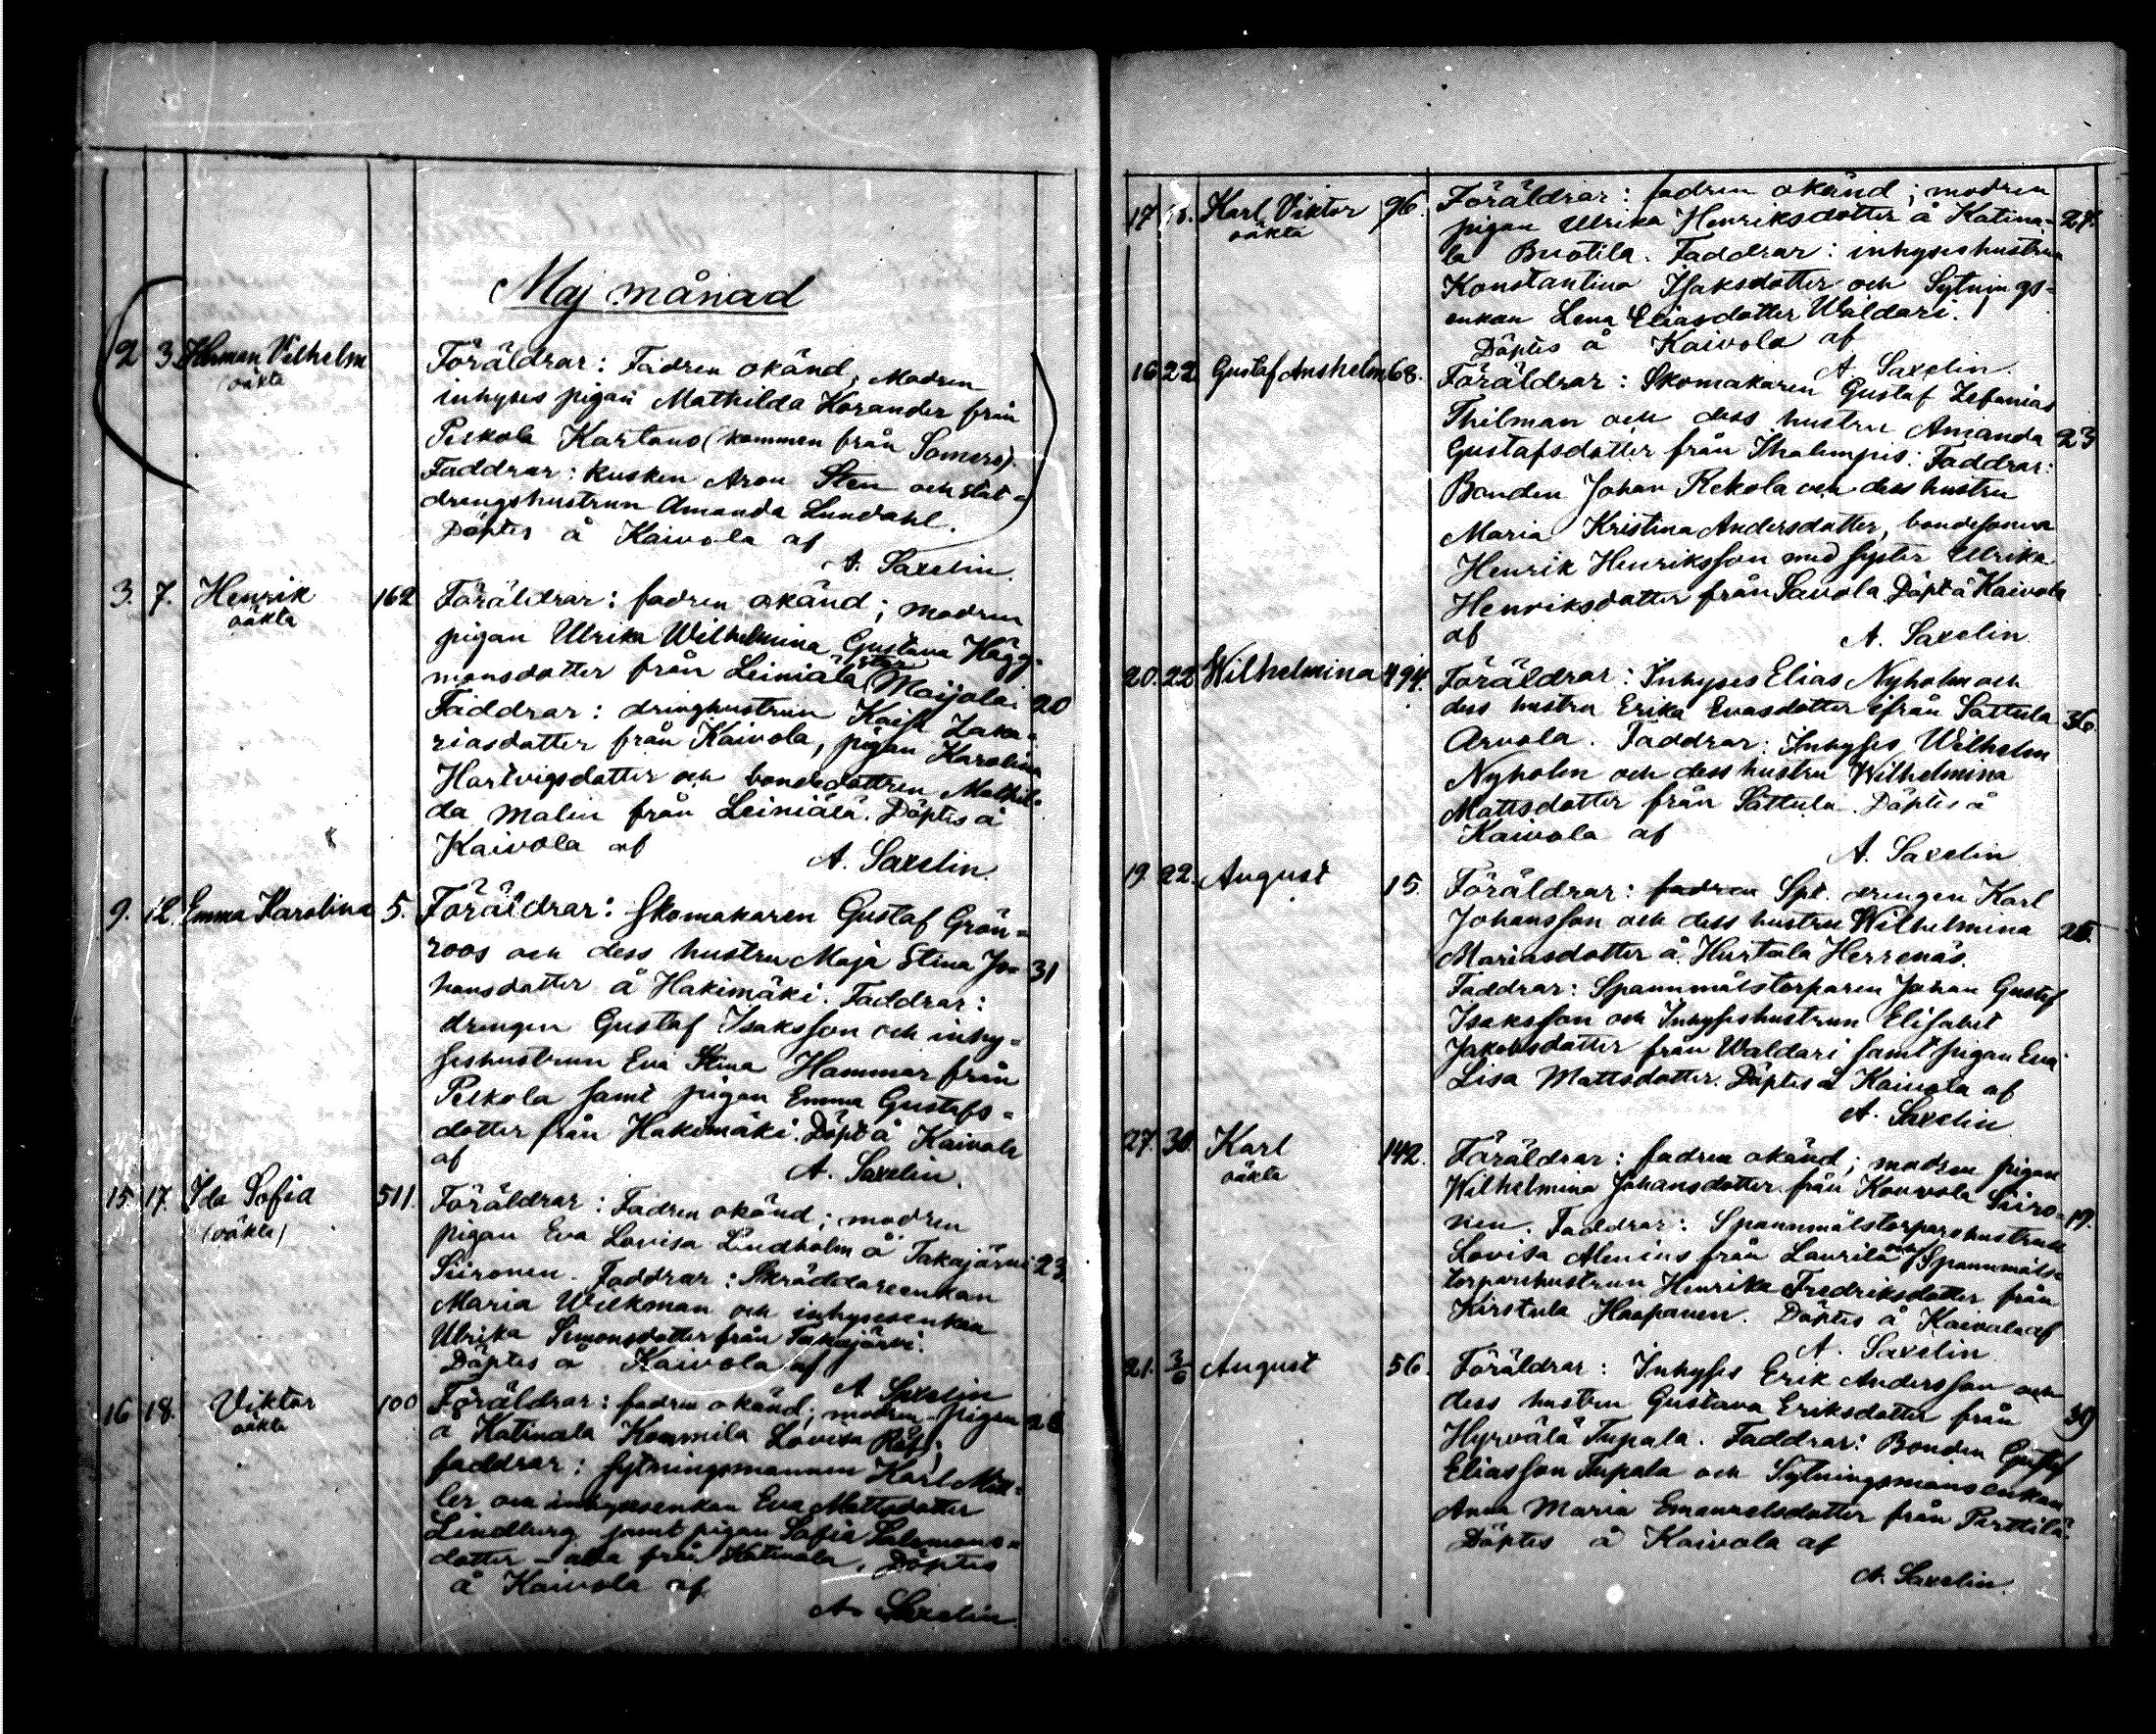 Maj månad
2 3. Herman Vilhelm Föräldrar: Fadren okänd, Modren
(oäkta inhyses pigan Mathilda Korander från
Perkola Kartano (kommen från Somero).
Faddrar: kusken Aron Sten och stat-
drengshustrun Amanda Lundahl.
Döptes å Kaivola af
A. Saxelin.
3. 7. Henrik 162 Föräldrar: fadren okänd; modren
oäkta pigan Ulrika Wilhelmina Gustava Hägg-
mansdotter från Leiniälä Maijola. 20
Faddrar: drenghustrun Kaisa Zaka-
riasdotter från Kaivola, pigan Karolina
Hartvigsdotter och bondedottren Mathil-
da Malin från Leiniälä. Döptes å
Kaivola af
A. Saxelin.
9. 12. Emma Karolina 5. Föräldrar: Skomakaren Gustaf Grön-
roos och dess hustru Maja Stina Jo- 31
hansdotter å Hakimäki. Faddrar:
drengen Gustaf Isaksson och inhy-
seshustrun Eva Stina Hammar från
Perkola samt pigan Emma Gustafs-
dotter från Hakimäki. Döpt å Kaivola
af
A. Saxelin.
15. 17. Ida Sofia 511. Föräldrar: Fadren okänd; modren
(oäkta) pigan Eva Lovisa Lindholm å Takajärvi 23.
Siironen. Faddrar: Skräddareenkan
Maria Wilkman och inhysesenkan
Ulrika Simonsdotter från Takajärvi.
Döptes å Kaivola af
A. Saxelin
16 18. Viktor 100 Föräldrar: fadren okänd; modren pigan
oäkta å Katinala Kommila Lovisa
faddrar: sytningsmannen Karl Mül-
ler och inhysesenkan Eva Mattsdotter
Lindberg samt pigan Sofia Salomons-
dotter – alla från Katinala. Döptes
å Kaivola af
A. Saxelin.
17 18. Karl Viktor 96. Föräldrar: fadren okänd; modren
oäkta pigan Ulrika Henriksdotter å Katina- 27.
la Buotila. Faddrar: inhyseshustrun
Konstantina Isaksdotter och Sytnings-
enkan Lena Eliasdotter Waldari.
Döptes å Kaivola af
A. Saxelin.
16 22 Gustaf Anshelm 68. Föräldrar: Skomakaren Gustaf Zefanias
Thilman och dess hustru Amanda 23
Gustafsdotter från Ihalempis. Faddrar:
Bonden Johan Rekola och dess hustru
Maria Kristina Andersdotter, bondesonen
Henrik Henriksson med syster Ulrika
Henriksdotter från Savola. Döpt å Kaivola
af
A. Saxelin
20. 22 Wilhelmina 494. Föräldrar: Inhyses Elias Nyholm och
dess hustru Erika Evasdotter ifrån Sattula 36.
Arvola. Faddrar: Inhyses Wilhelm
Nyholm och dess hustru Wilhelmina
Mattsdotter från Sattula. Döptes å
Kaivola af
A. Saxelin
19. 22. August 15. Föräldrar: fadren Spt. drengen Karl
Johansson och dess hustru Wilhelmina
Mariasdotter å Hurtala Herrenäs.
Faddrar: Spannmålstorparen Johan Gustaf
Isaksson och Inhyseshustrun Elisabet
Jakobsdotter från Waldari samt pigan Eva
Lisa Mattsdotter. Döptes å Kaivola af
A. Saxelin
27. 30. Karl 142. Föräldrar: fadren okänd; modren pigan
oäkta Wilhelmina Johansdotter från Kouvola Siiro- 19.
nen. Faddrar: Spannmålstorparehustrun
Lovisa Alenius från Laurila och Spannmåls-
torparehustrun Henrika Fredriksdotter från
Kirstula Haapanen. Döptes å Kaivola af
A. Saxelin
21. 3/6 August 56. Föräldrar: Inhyses Erik Andersson och
dess hustru Gustava Eriksdotter från 39
Hyrvälä Tupala. Faddrar: Bonden Gustaf
Eliasson Tupala och Sytningsmansenkan
Anna Maria Emanuelsdotter från Perttilä.
Döptes å Kaivola af
A. Saxelin.